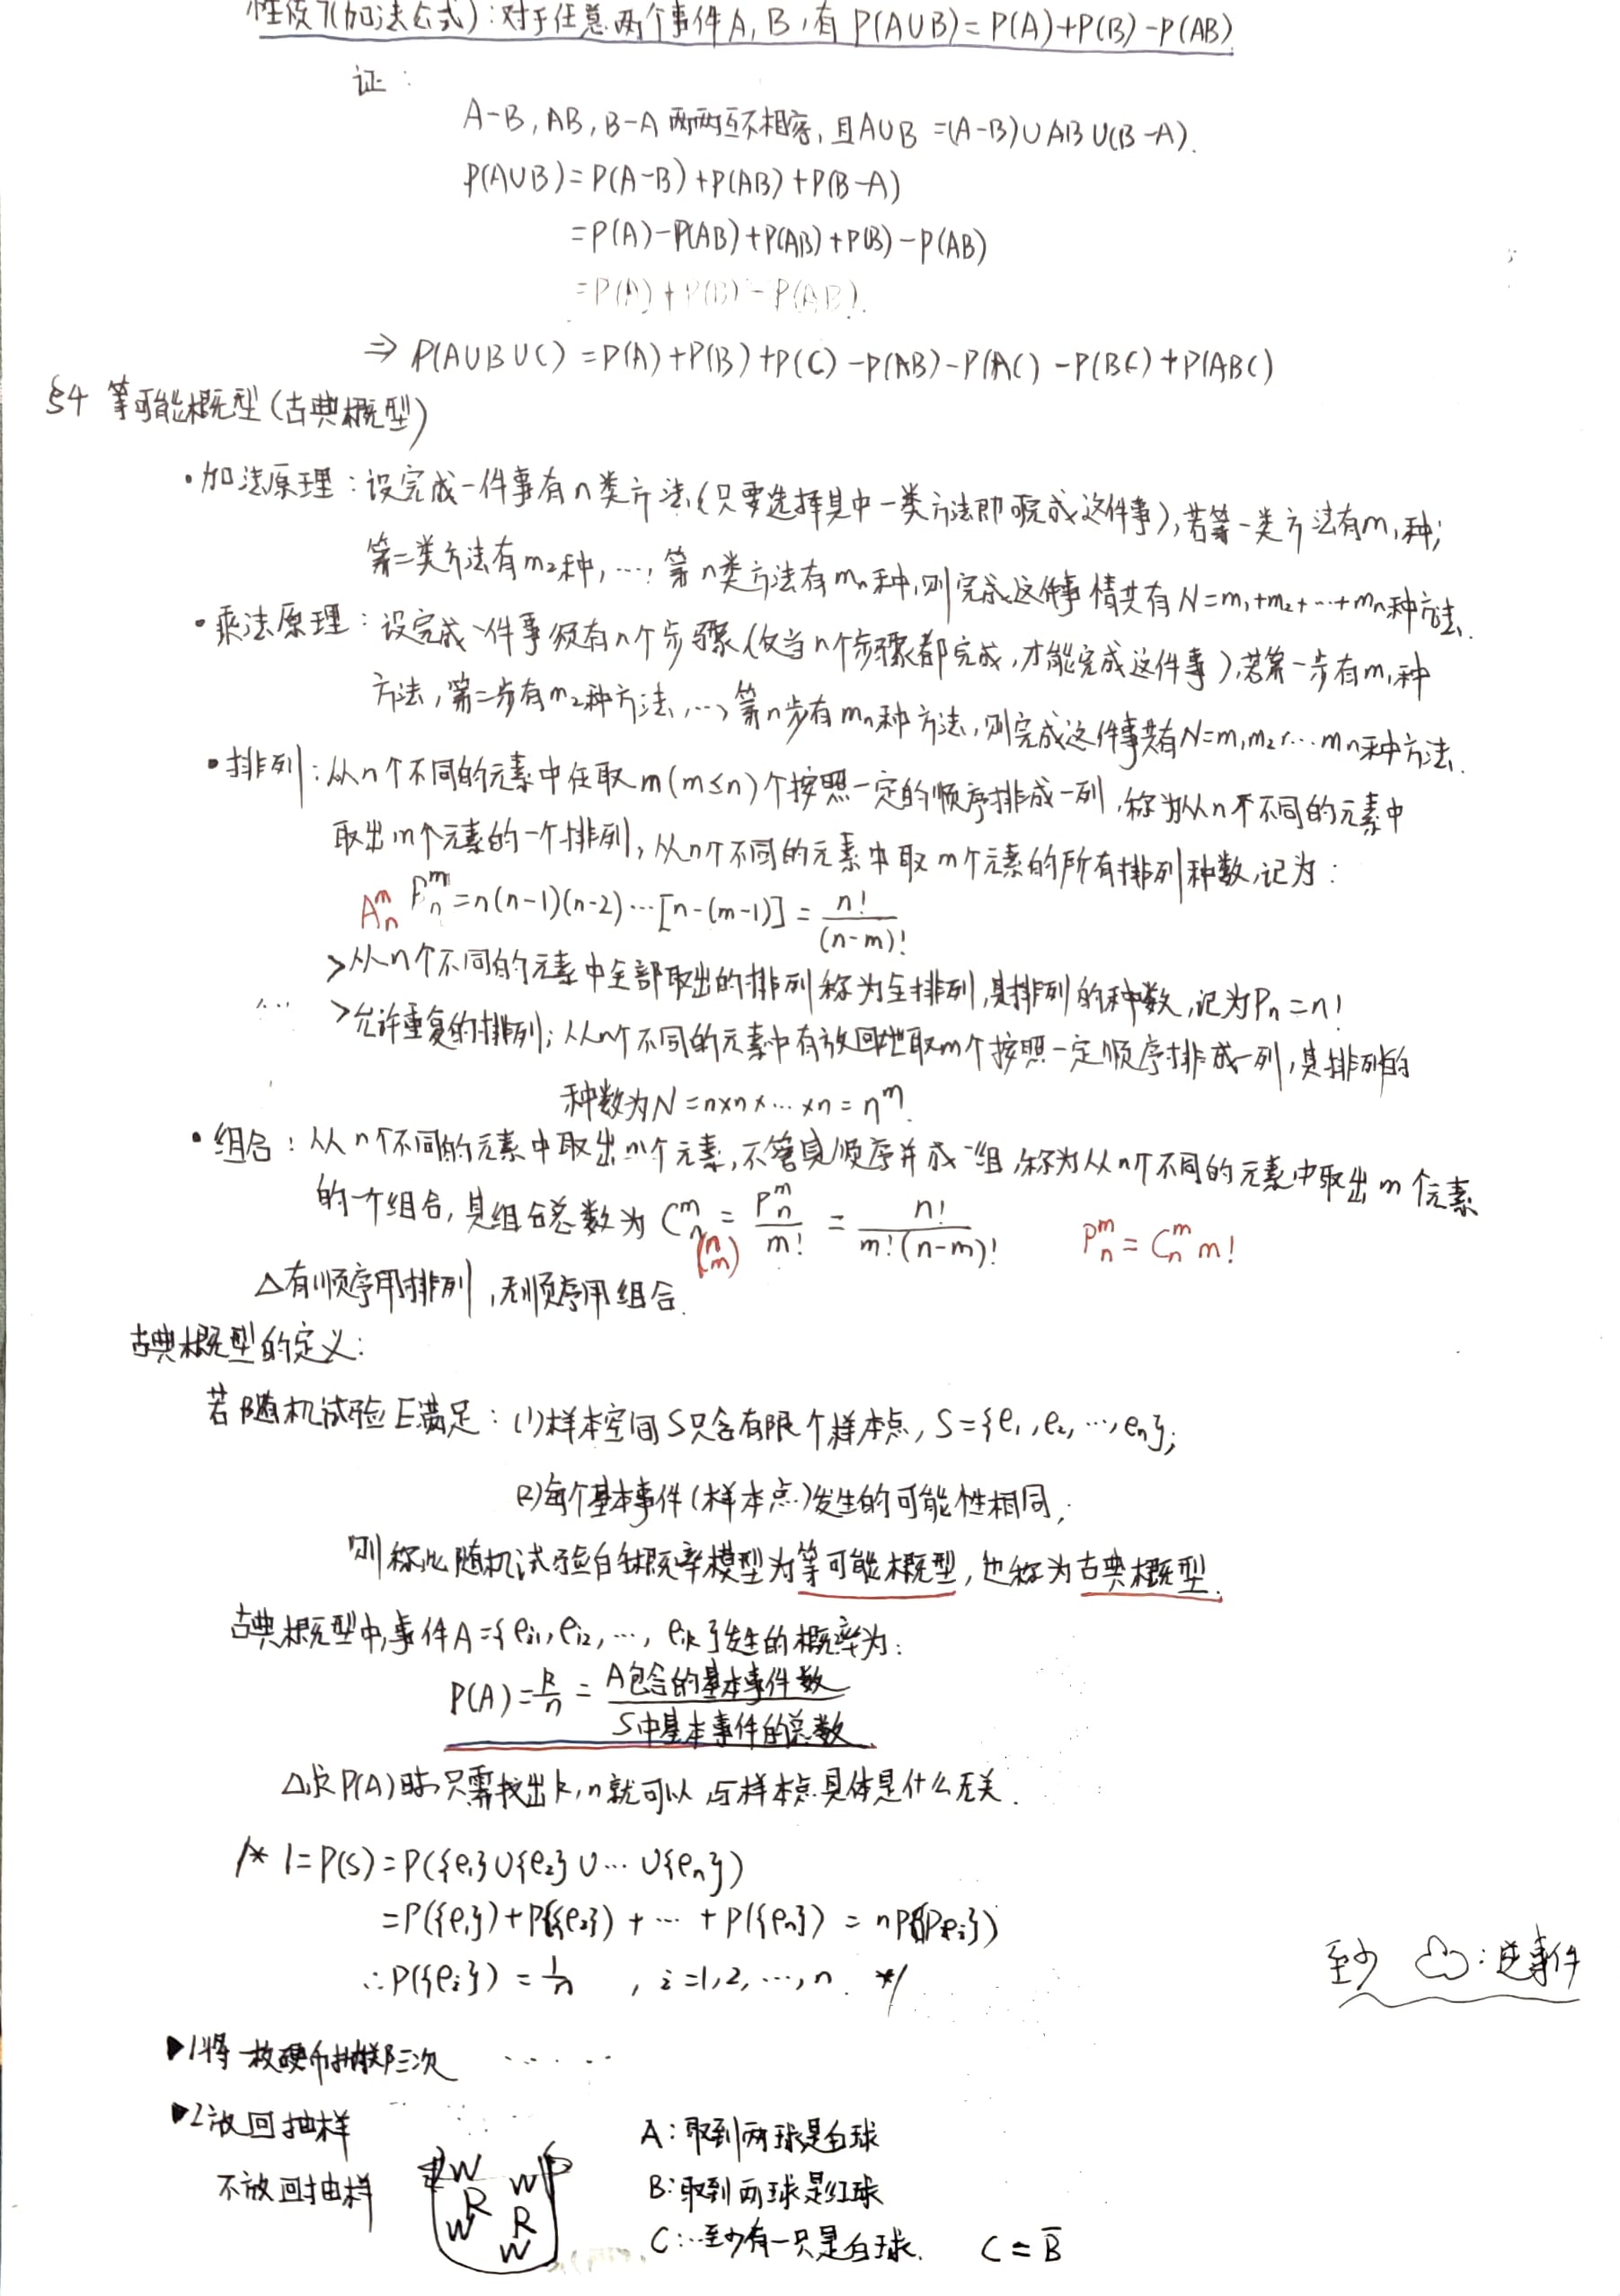 性质7(加法公式):对于任意两个事件A,B,有 P(A∪B)=P(A)+P(B)-P(AB)
证:
A-B,AB,B-A两两互不相容,且A∪B=(A-B)∪AB∪(B-A).
P(A∪B)=P(A-B)+P(AB)+P(B-A)
=P(A)-P(AB)+P(AB)+P(B)-P(AB)
=P(A)+P(B)-P(AB).
⇒ P(A∪B∪C)=P(A)+P(B)+P(C)-P(AB)-P(AC)-P(BC)+P(ABC)
§4 等可能概型(古典概型)
·加法原理:设完成一件事有n类方法(只要选择其中一类方法即可完成这件事),若第一类方法有m₁种;
第二类方法有m₂种,…,第n类方法有mₙ种,则完成这件事情共有N=m₁+m₂+…+mₙ种方法.
·乘法原理:设完成一件事须有n个步骤(仅当n个步骤都完成,才能完成这件事),若第一步有m₁种
方法,第二步有m₂种方法,…,第n步有mₙ种方法,则完成这件事共有N=m₁m₂…mₙ种方法.
·排列:从n个不同的元素中任取m(m≤n)个按照一定的顺序排成一列,称为从n个不同的元素中
取出m个元素的一个排列,从n个不同的元素中取m个元素的所有排列种数,记为:
Aₙᵐ Pₙᵐ=n(n-1)(n-2)…[n-(m-1)]=n!/(n-m)!
>从n个不同的元素中全部取出的排列称为全排列,其排列的种数,记为Pₙ=n!
>允许重复的排列:从n个不同的元素中有放回地取m个按照一定顺序排成一列,其排列的
种数为N=n×n×…×n=nᵐ.
·组合:从n个不同的元素中取出m个元素,不管其顺序并成一组,称为从n个不同的元素中取出m个元素
的一个组合,其组合总数为 Cₙᵐ=Pₙᵐ/m!=n!/m!(n-m)! Pₙᵐ=Cₙᵐ m!
(n m)
△有顺序用排列,无顺序用组合.
古典概型的定义:
若随机试验E满足:(1)样本空间S只含有限个样本点,S={e₁,e₂,…,eₙ};
(2)每个基本事件(样本点)发生的可能性相同,
则称此随机试验的概率模型为等可能概型,也称为古典概型.
古典概型中,事件A={eᵢ₁,eᵢ₂,…,eᵢₖ}发生的概率为:
P(A)=k/n=A包含的基本事件数/S中基本事件的总数.
△求P(A)时只需找出k,n就可以 与样本点具体是什么无关.
/* 1=P(S)=P({e₁}∪{e₂}∪…∪{eₙ})
=P({e₁})+P({e₂})+…+P({eₙ})=nP({eᵢ})
∴P({eᵢ})=1/n ,i=1,2,…,n. */
至少 :逆事件
▶1将一枚硬币抛掷三次 ……
▶2放回抽样
不放回抽样
W W R W R W
A:取到两球是白球
B:取到两球是红球
C:…至少有一只是白球. C=B̄